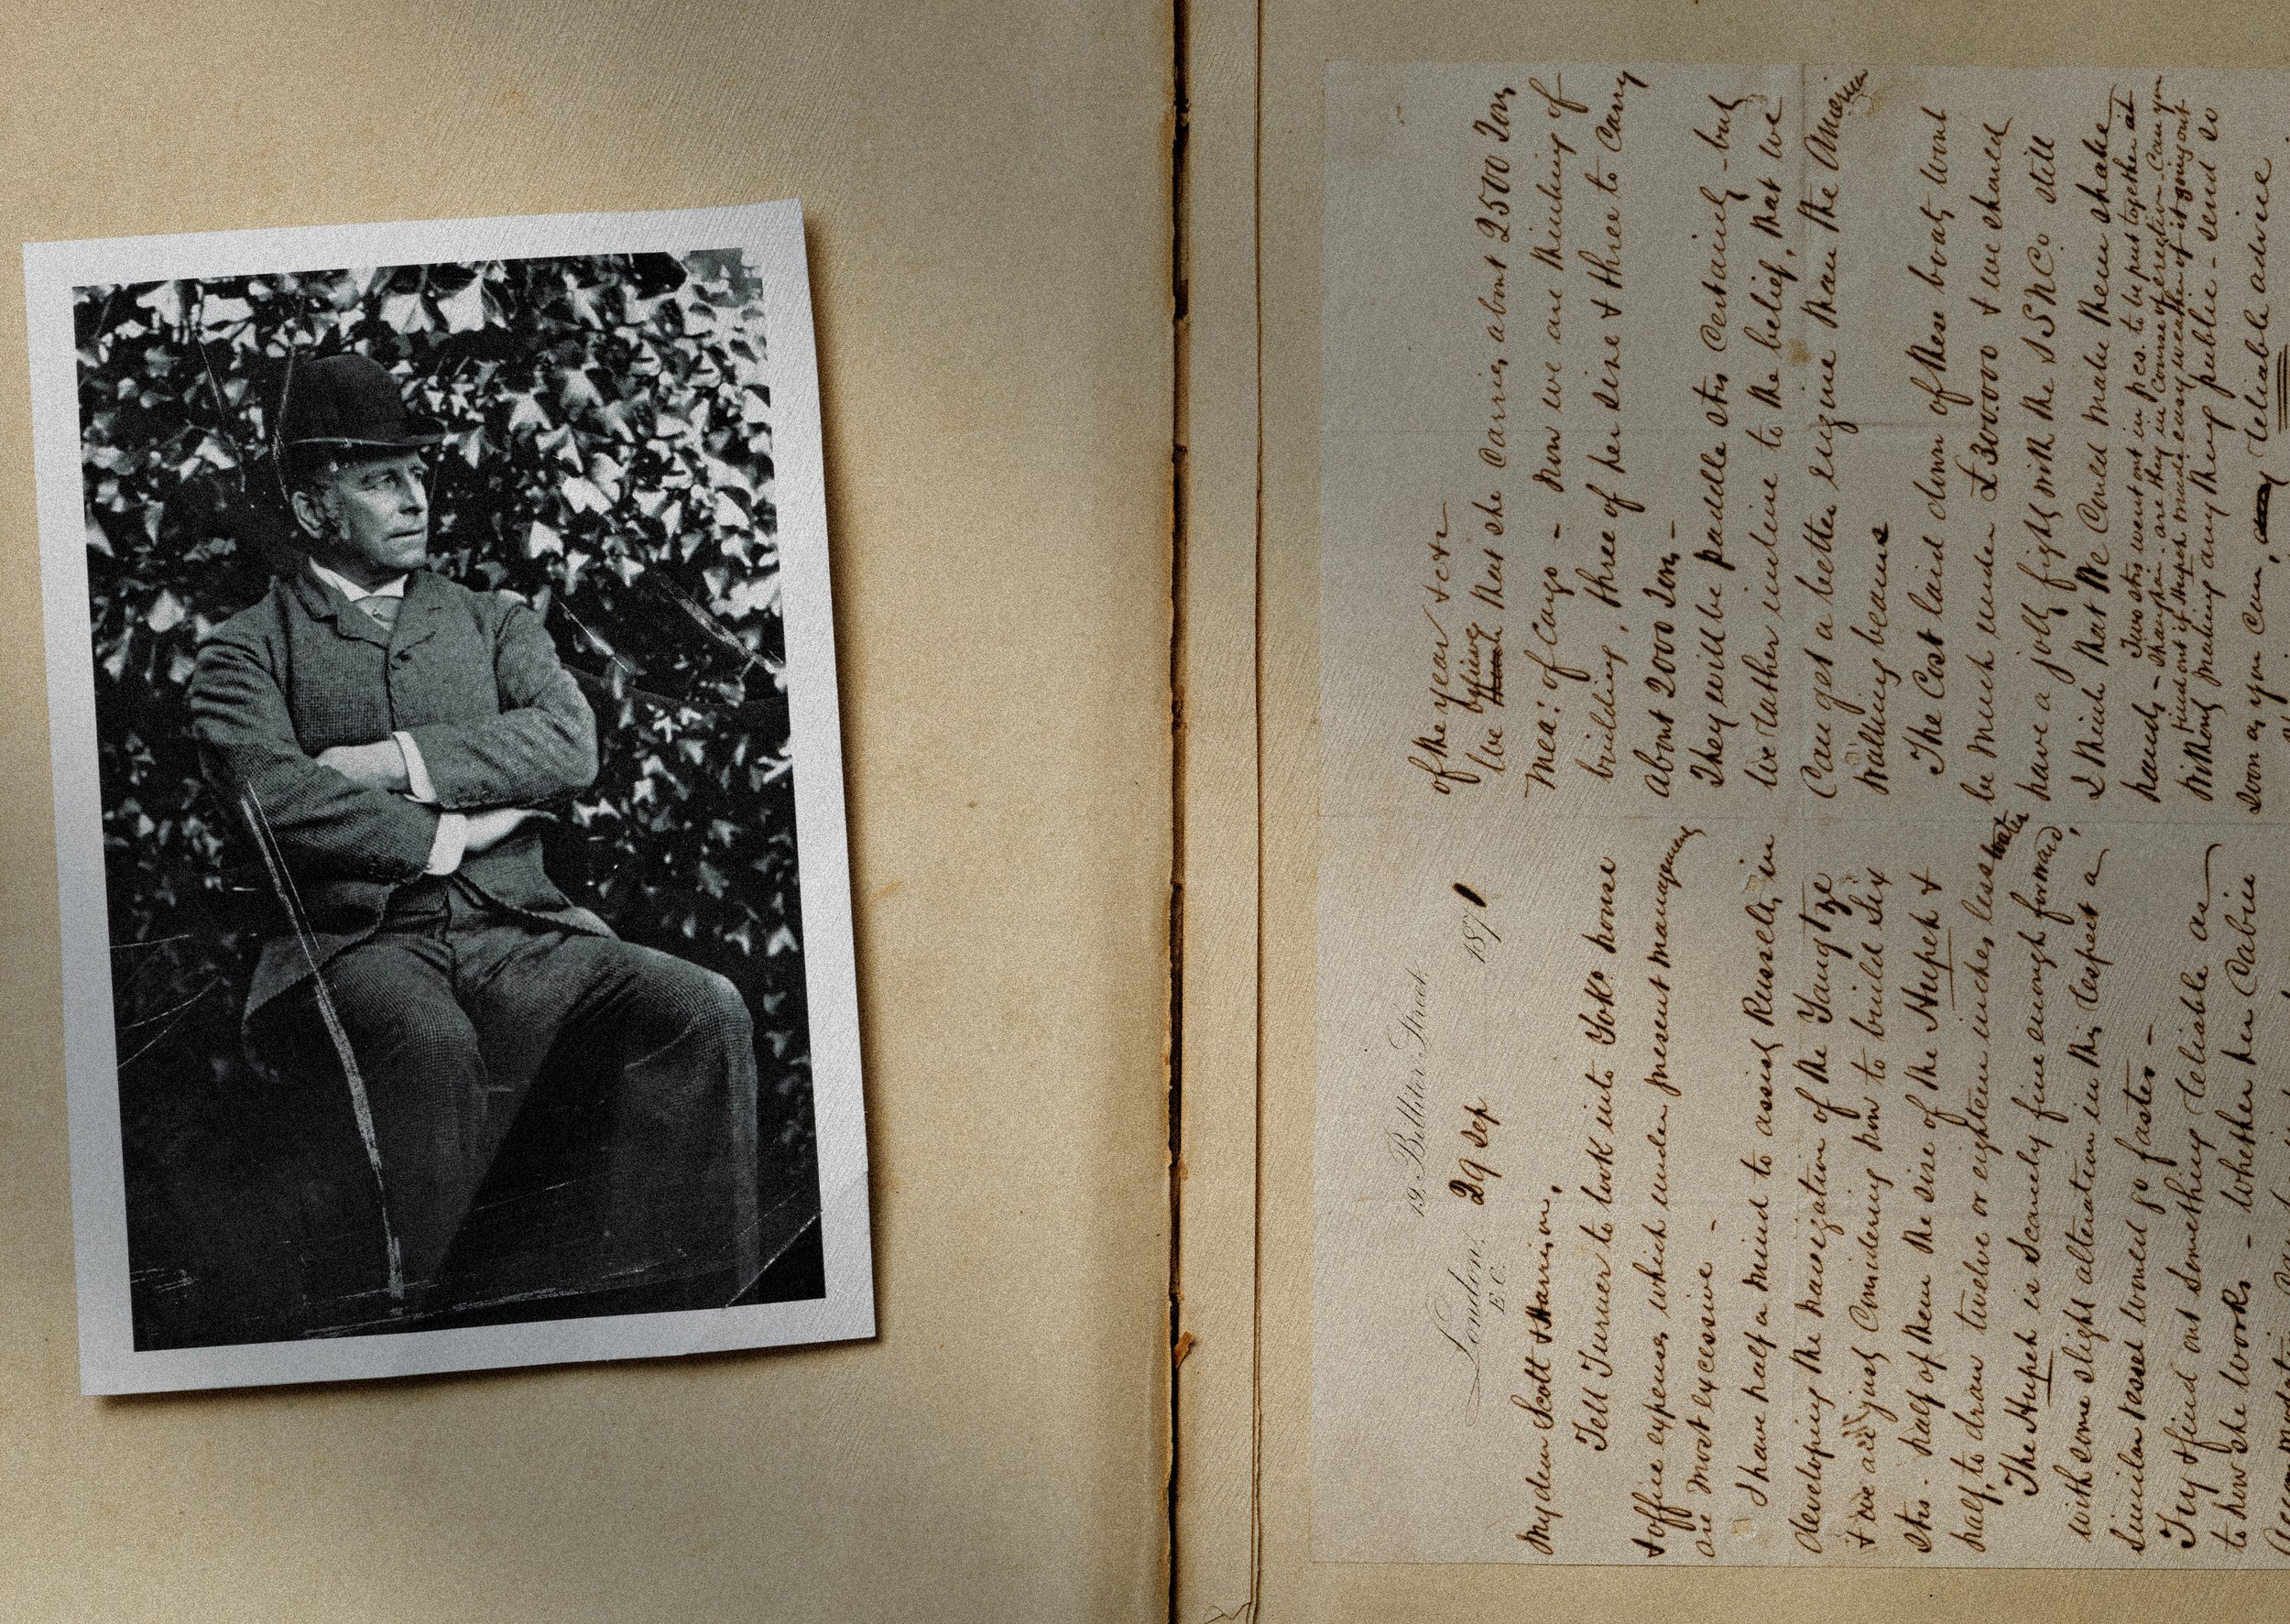 19, Billiter Street.
London, 29 Sep 1871
E.C.
My dear Scott & Harrison,
Tell Turner to look into Yoko. house
& office expenses which under present management
are most excessive. -
I have half a mind to assist Russells in
developing the navigation of the Yangtze
& we are just considering how to build six
Strs. half of them the size of the Hupeh &
half to draw twelve or eighteen inches less water
The Hupeh is scarcely fine enough forward,
with some slight alteration in this respect a
similar vessel would go faster -
Try & find out something reliable as
to how she works - whether her Cabin
of the year &c &c
We believe that she carries about 2500 Tons
Meat. of Cargo - Now we are thinking of
building, three of her size & three to carry
about 2000 Tons -
They will be paddle strs certainly - but
we rather incline to the belief, that we
can get a better engine than the American
walking beams
The Cost laid down of these boats wont
be much under £300.000 & we should
have a jolly fight with the SSNCo. still
I think that We Could make them shake
hands - Two strs went out in pcs. to be put together at
Shanghai - are they in course of erection - Can you
find out if Hupeh made easy weather of it going out
Without making any thing public - send so
soon as you can, reliable advice